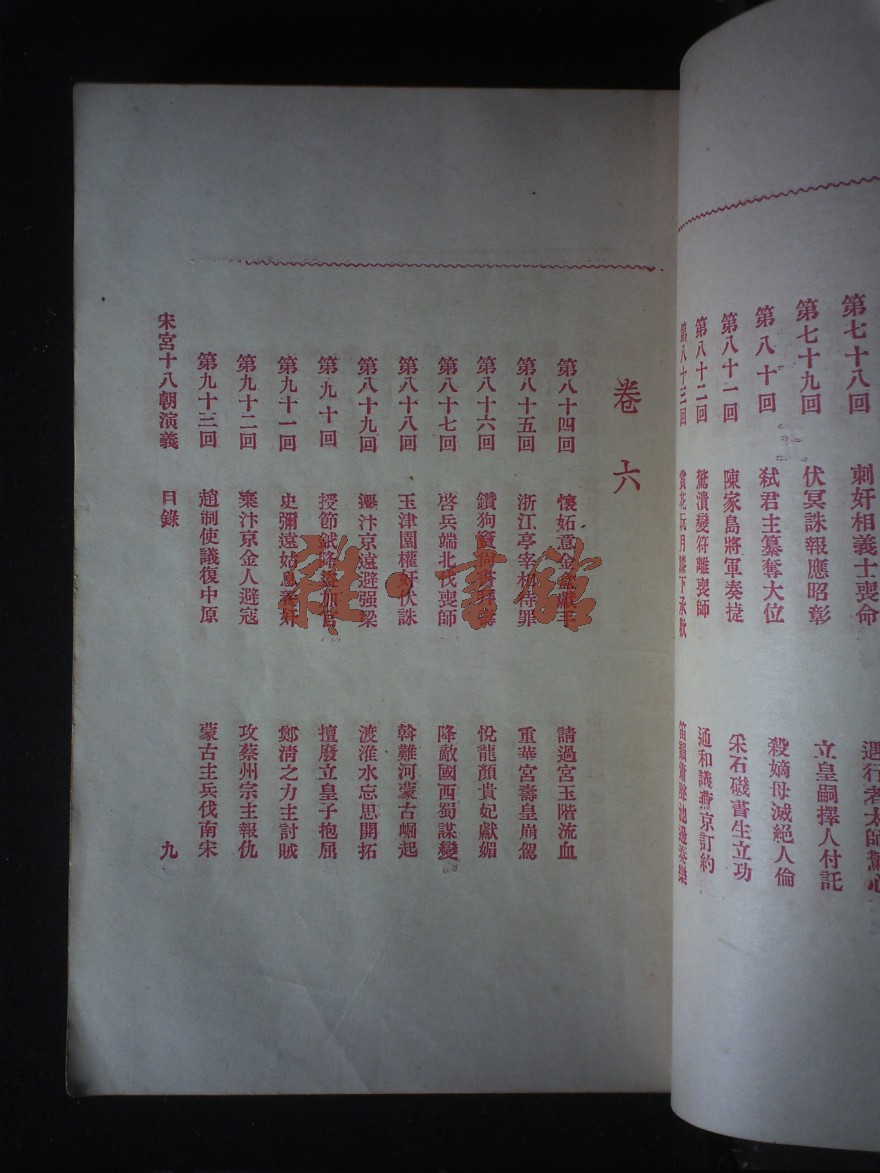 第七十八回 刺奸相義士喪命
第七十九回 伏冥誅報應昭彰 立皇嗣擇人付託
第八十回 弑君主纂奪大位 殺嫡母滅絕人倫
第八十一回 陳家島將軍奏捷 采石磯書生立功
第八十二回 驚潰變符離喪師 通和議燕京訂約
第八十三回 賞花玩月膝下承歡
卷六
第八十四回 懷妬意金盒獻手 請過宮玉階流血
第八十五回 浙江亭宰相待罪 重華宮壽皇崩駕
第八十六回 鑽狗竇尚書 悅龍顏貴妃獻媚
第八十七回 啓兵端北伐喪師 降敵國西蜀謀變
第八十八回 玉津園權奸伏誅 斡難河蒙古崛起
第八十九回 遷汴京遠避强梁 渡淮水忘思開拓
第九十回 授節鉞 擅廢立皇子抱屈
第九十一回 史彌遠姑息養奸 鄭清之力主討賊
第九十二回 棄汴京金人避寇 攻蔡州宗主報仇
第九十三回 趙制使議復中原 蒙古主兵伐南宋
宋宮十八朝演義 目錄 九
雜·書館